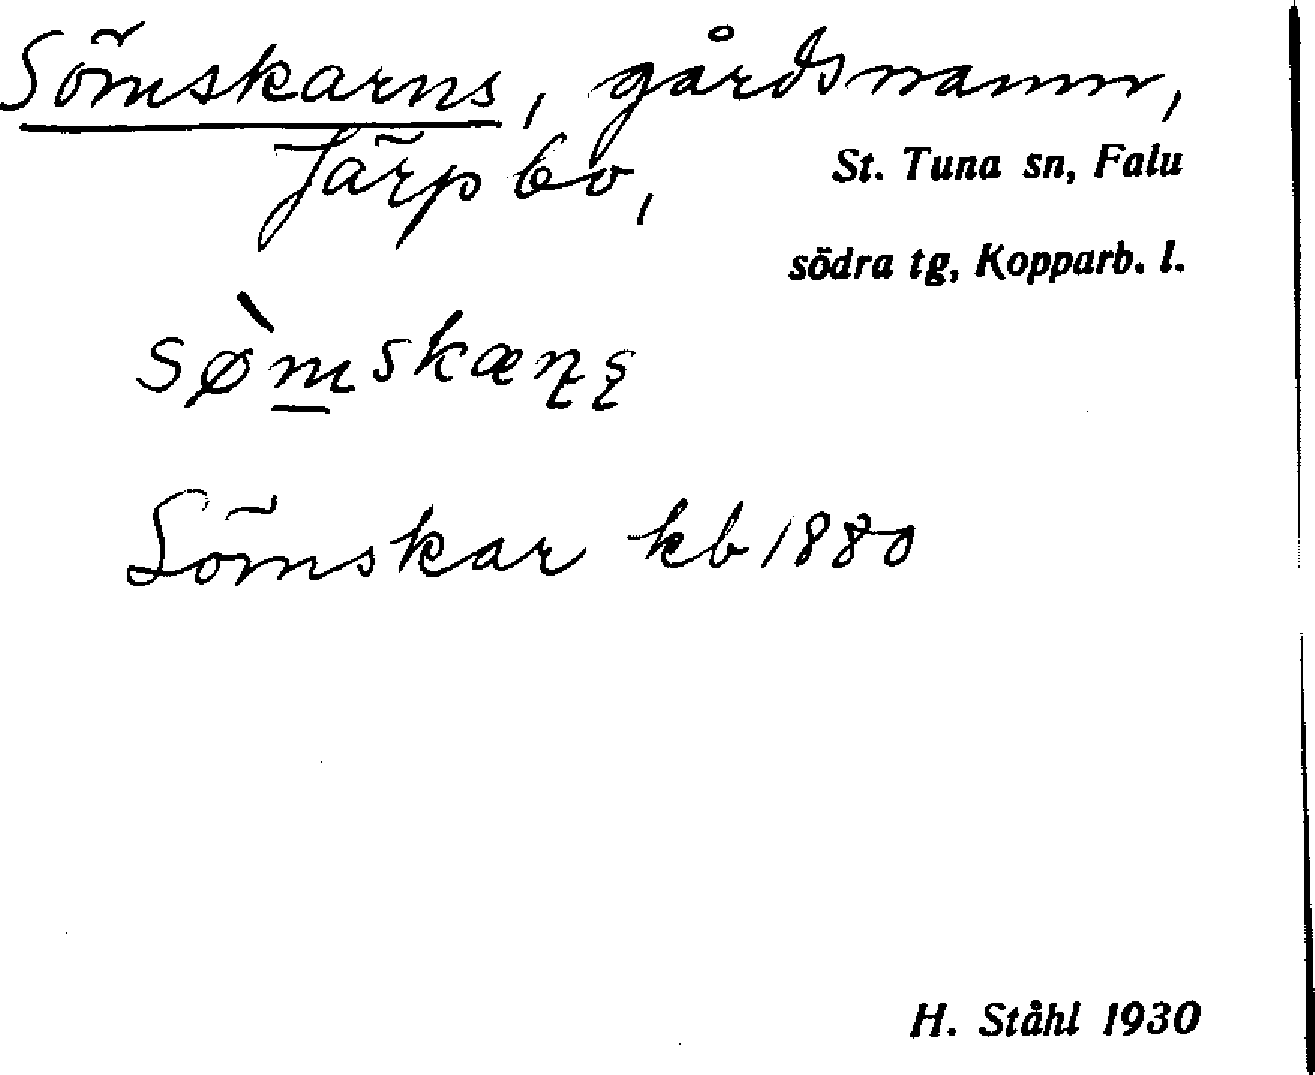 Sömskarns, gårdsnamn,
Järpbo,
St. Tuna sn, Falu
södra tg, Kopparb. l.
sø̀m̲skæɳʂ
Sömskar kb 1880
H. Ståhl 1930